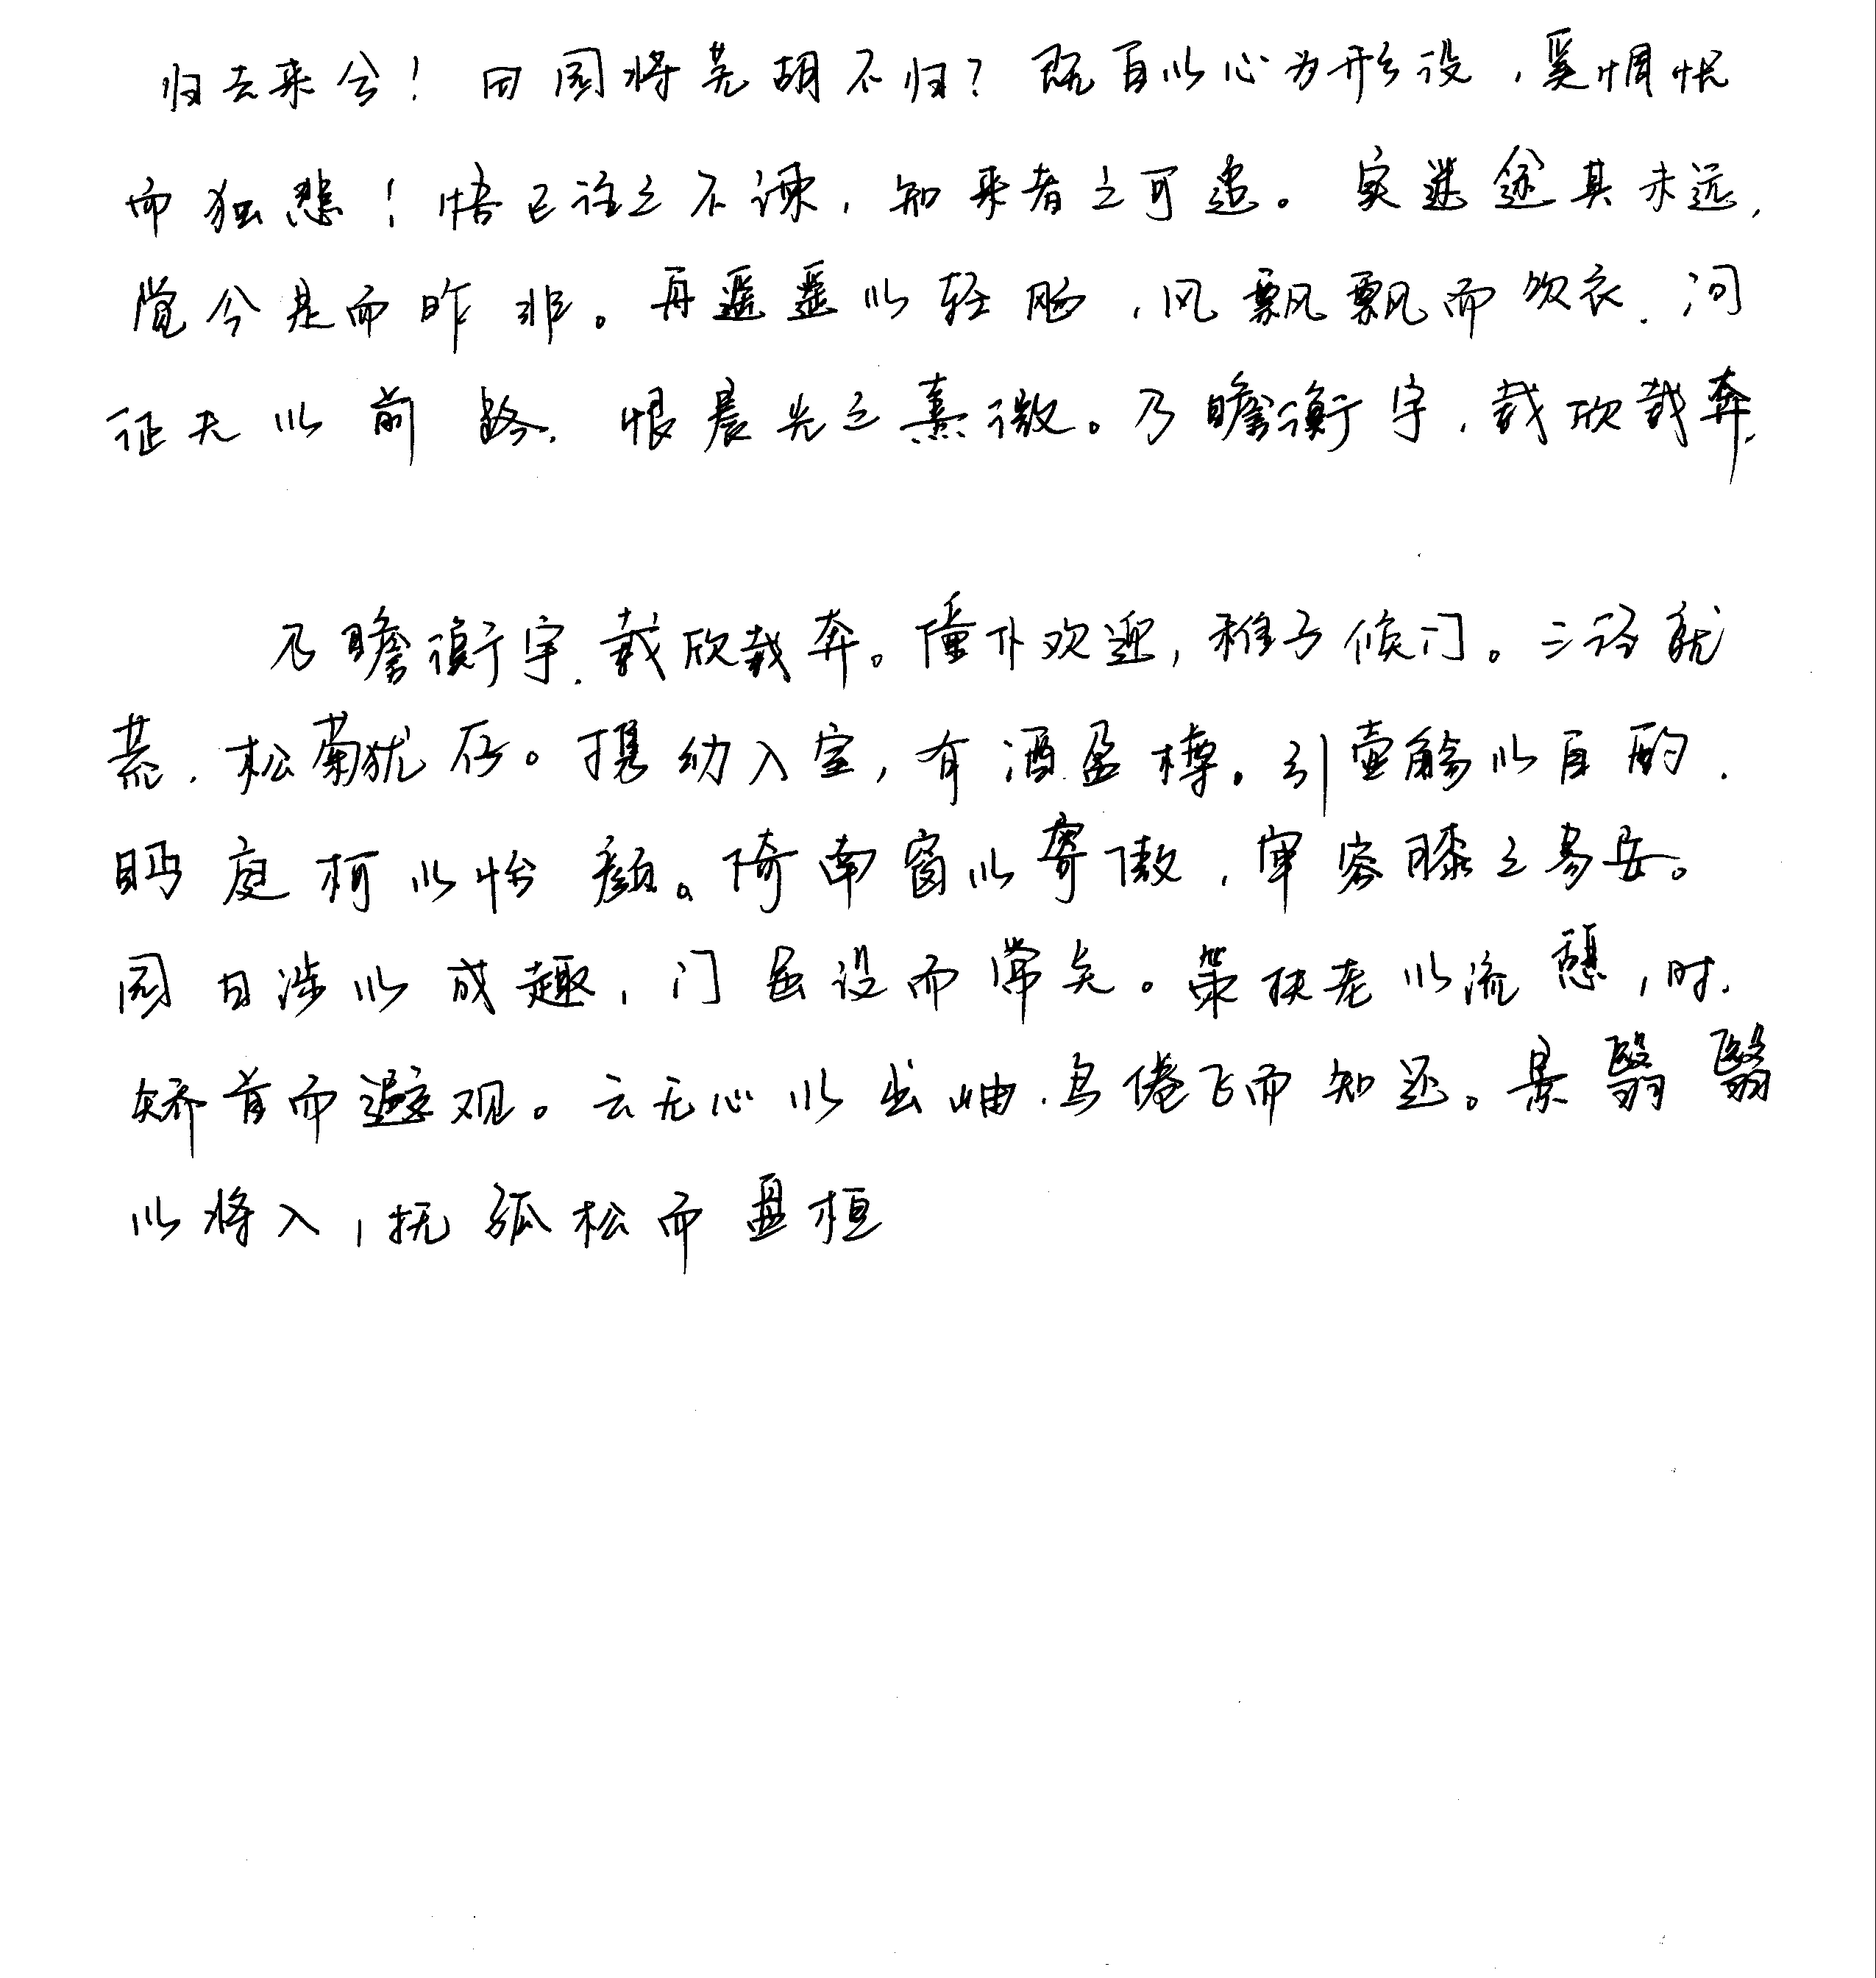 归去来兮！田园将芜胡不归？既自以心为形役，奚惆怅
而独悲！悟已往之不谏，知来者之可追。实迷途其未远，
觉今是而昨非。舟遥遥以轻飏，风飘飘而吹衣，问
征夫以前路，恨晨光之熹微。乃瞻衡宇，载欣载奔，
乃瞻衡宇，载欣载奔。僮仆欢迎，稚子候门。三径就
荒，松菊犹存。携幼入室，有酒盈樽。引壶觞以自酌，
眄庭柯以怡颜。倚南窗以寄傲，审容膝之易安。
园日涉以成趣，门虽设而常关。策扶老以流憩，时，
矫首而遐观。云无心以出岫，鸟倦飞而知还。景翳翳
以将入，抚孤松而盘桓